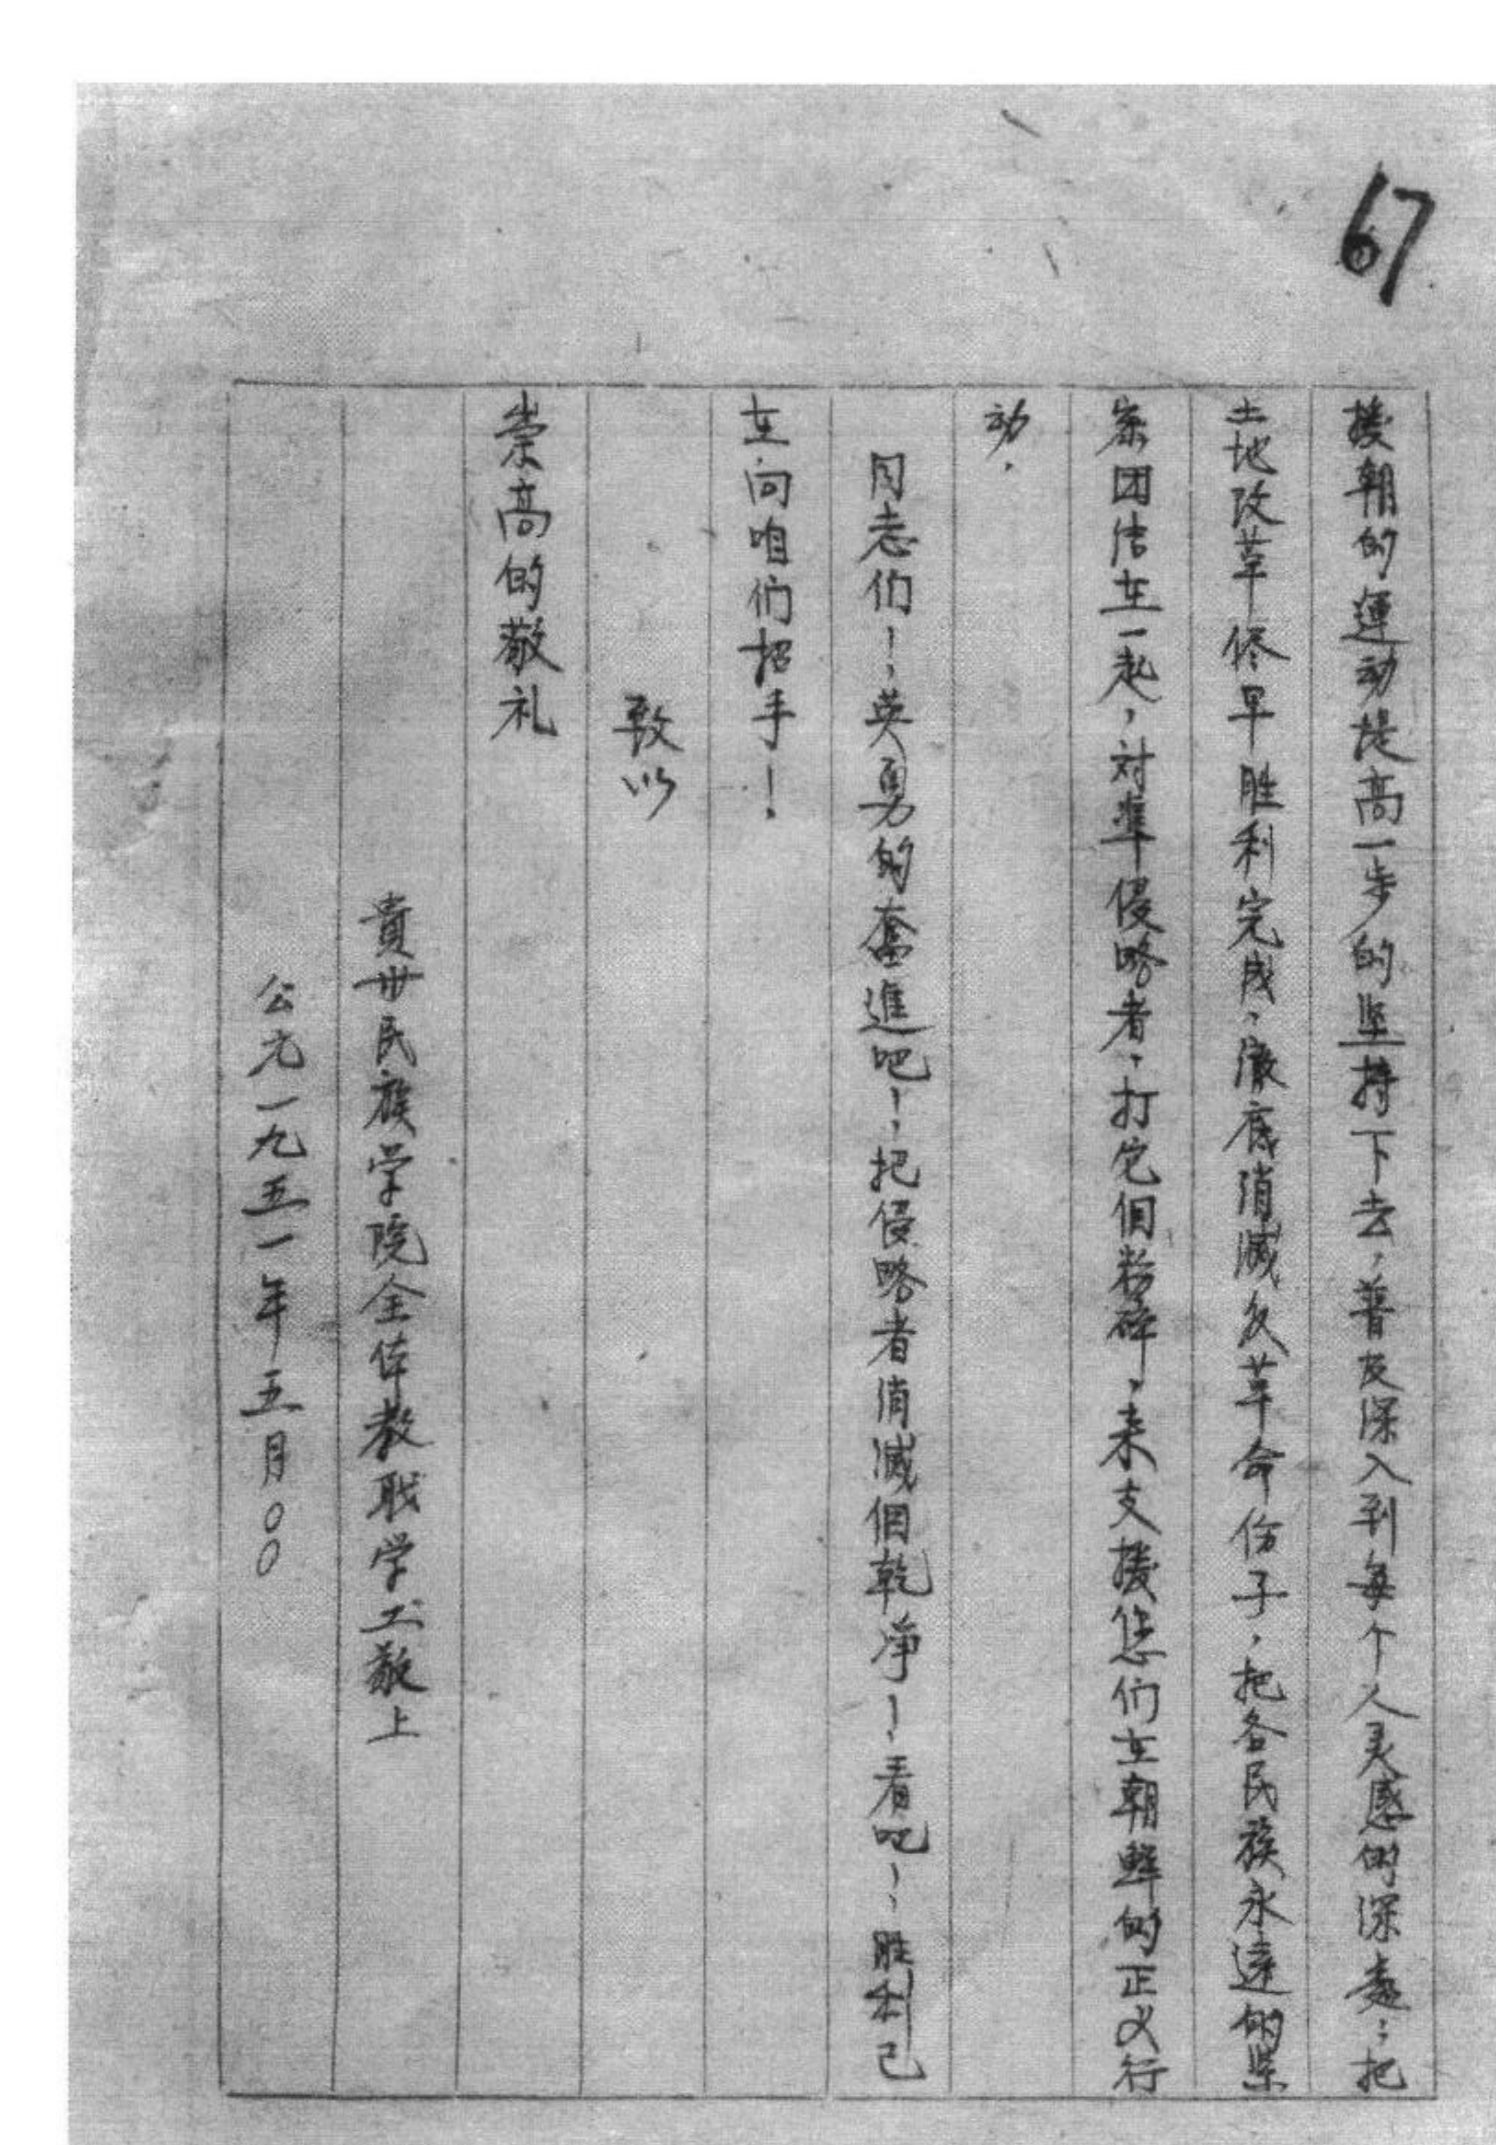 67
援朝的運动提高一步的坚持下去，普及深入到每个人灵感的深處；把
土地改革修早胜利完成，澈底消滅反革命份子，把各民族永遠的紧
紧团结在一起，对準侵略者，打它個粉碎，来支援您们在朝鲜的正义行
动．
同志们！英勇的奮進吧！把侵略者消滅個乾净！看吧！胜利已
在向咱们招手！
致以
崇高的敬礼
貴卅民族学院全体教职学工敬上
公元一九五一年五月〇〇